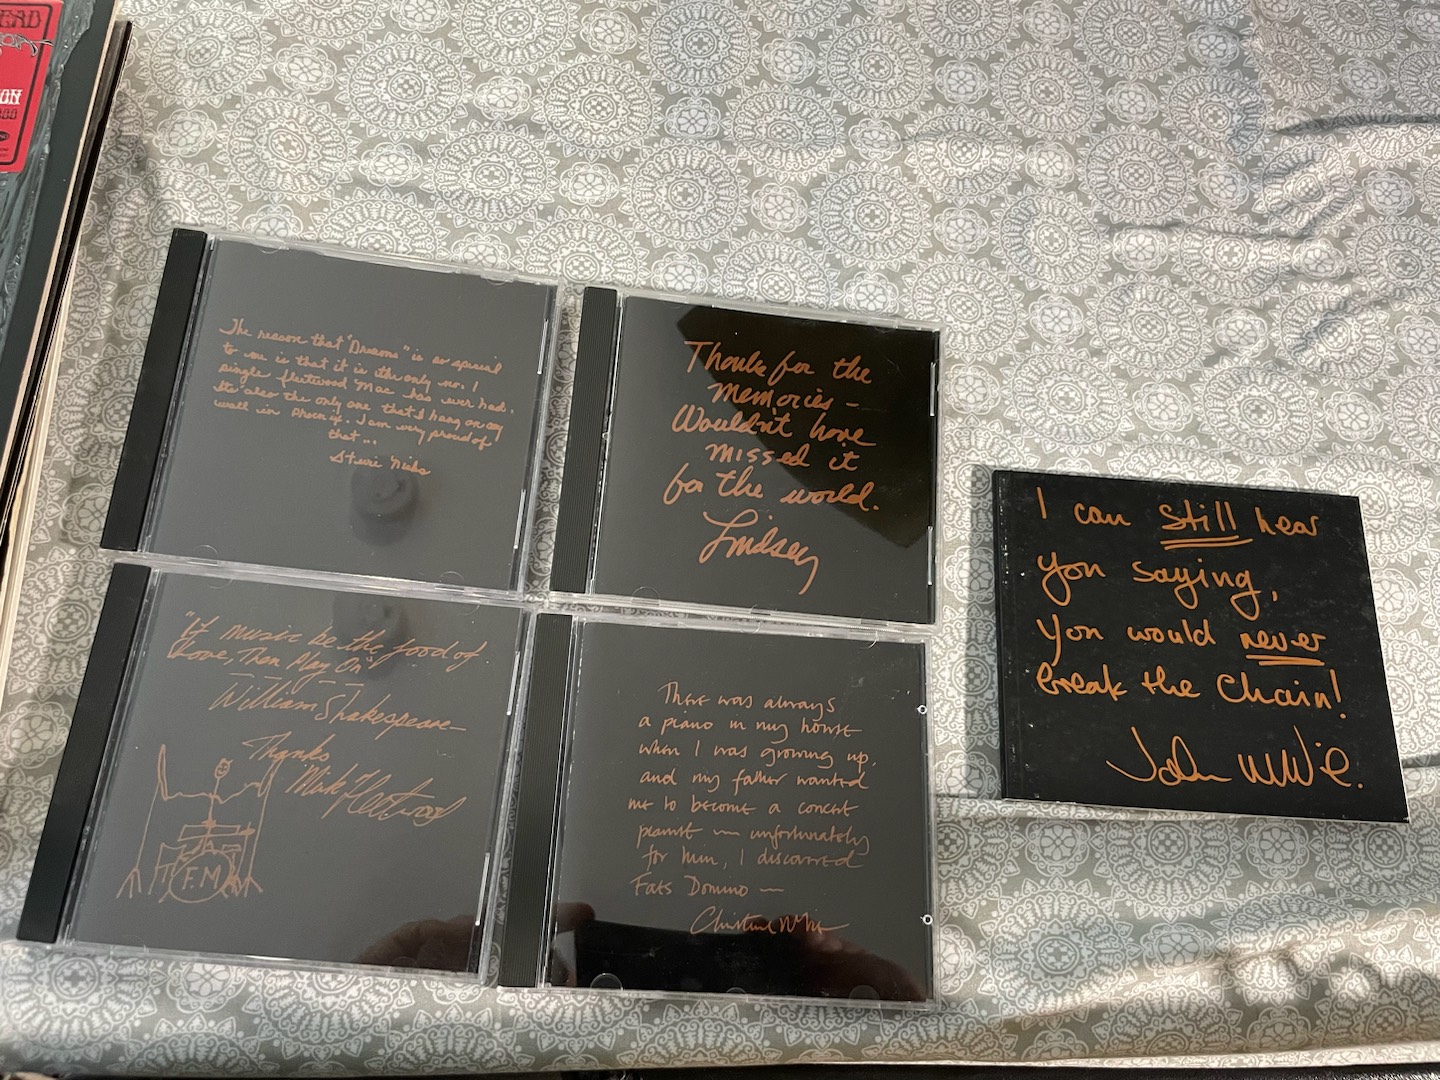 EAD
ON
The reason that "Dreams" is so special
to me is that it is the only no. 1
single fleetwood Mac has ever had.
Its also the only one that I hang on my
wall in Phoenix. I am very proud of
that...
Stevie Nicks
Thanks for the
memories –
Wouldn't have
missed it
for the world.
Lindsey
"If music be the food of
Love, Then Play On"
William Shakespeare
Thanks
Mick Fleetwood
F.M
There was always
a piano in my house
when I was growing up,
and my father wanted
me to become a concert
pianist — unfortunately
for him, I discovered
Fats Domino —
Christine McVie
I can still hear
you saying,
you would never
break the Chain!
John McVie.